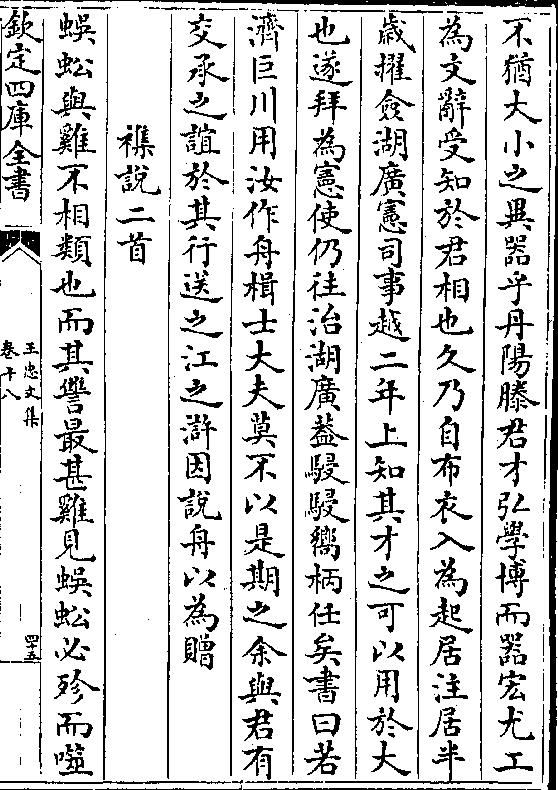 不猶大小之異器乎丹陽滕君才弘學博而器宏尤工
為文辭受知於君相也久乃自布衣入為起居注居半
歲擢僉湖廣憲司事越二年上知其才之可以用於大
也遂拜為憲使仍往治湖廣葢駸駸嚮柄任矣書曰若
濟巨川用汝作舟楫士大夫莫不以是期之余與君有
交承之誼於其行送之江之滸因說舟以為贈
襍說二首
蜈蚣與雞不相類也而其讐最甚雞見蜈蚣必殄而噬
欽定四庫全書
王忠文集
卷十八
四十五